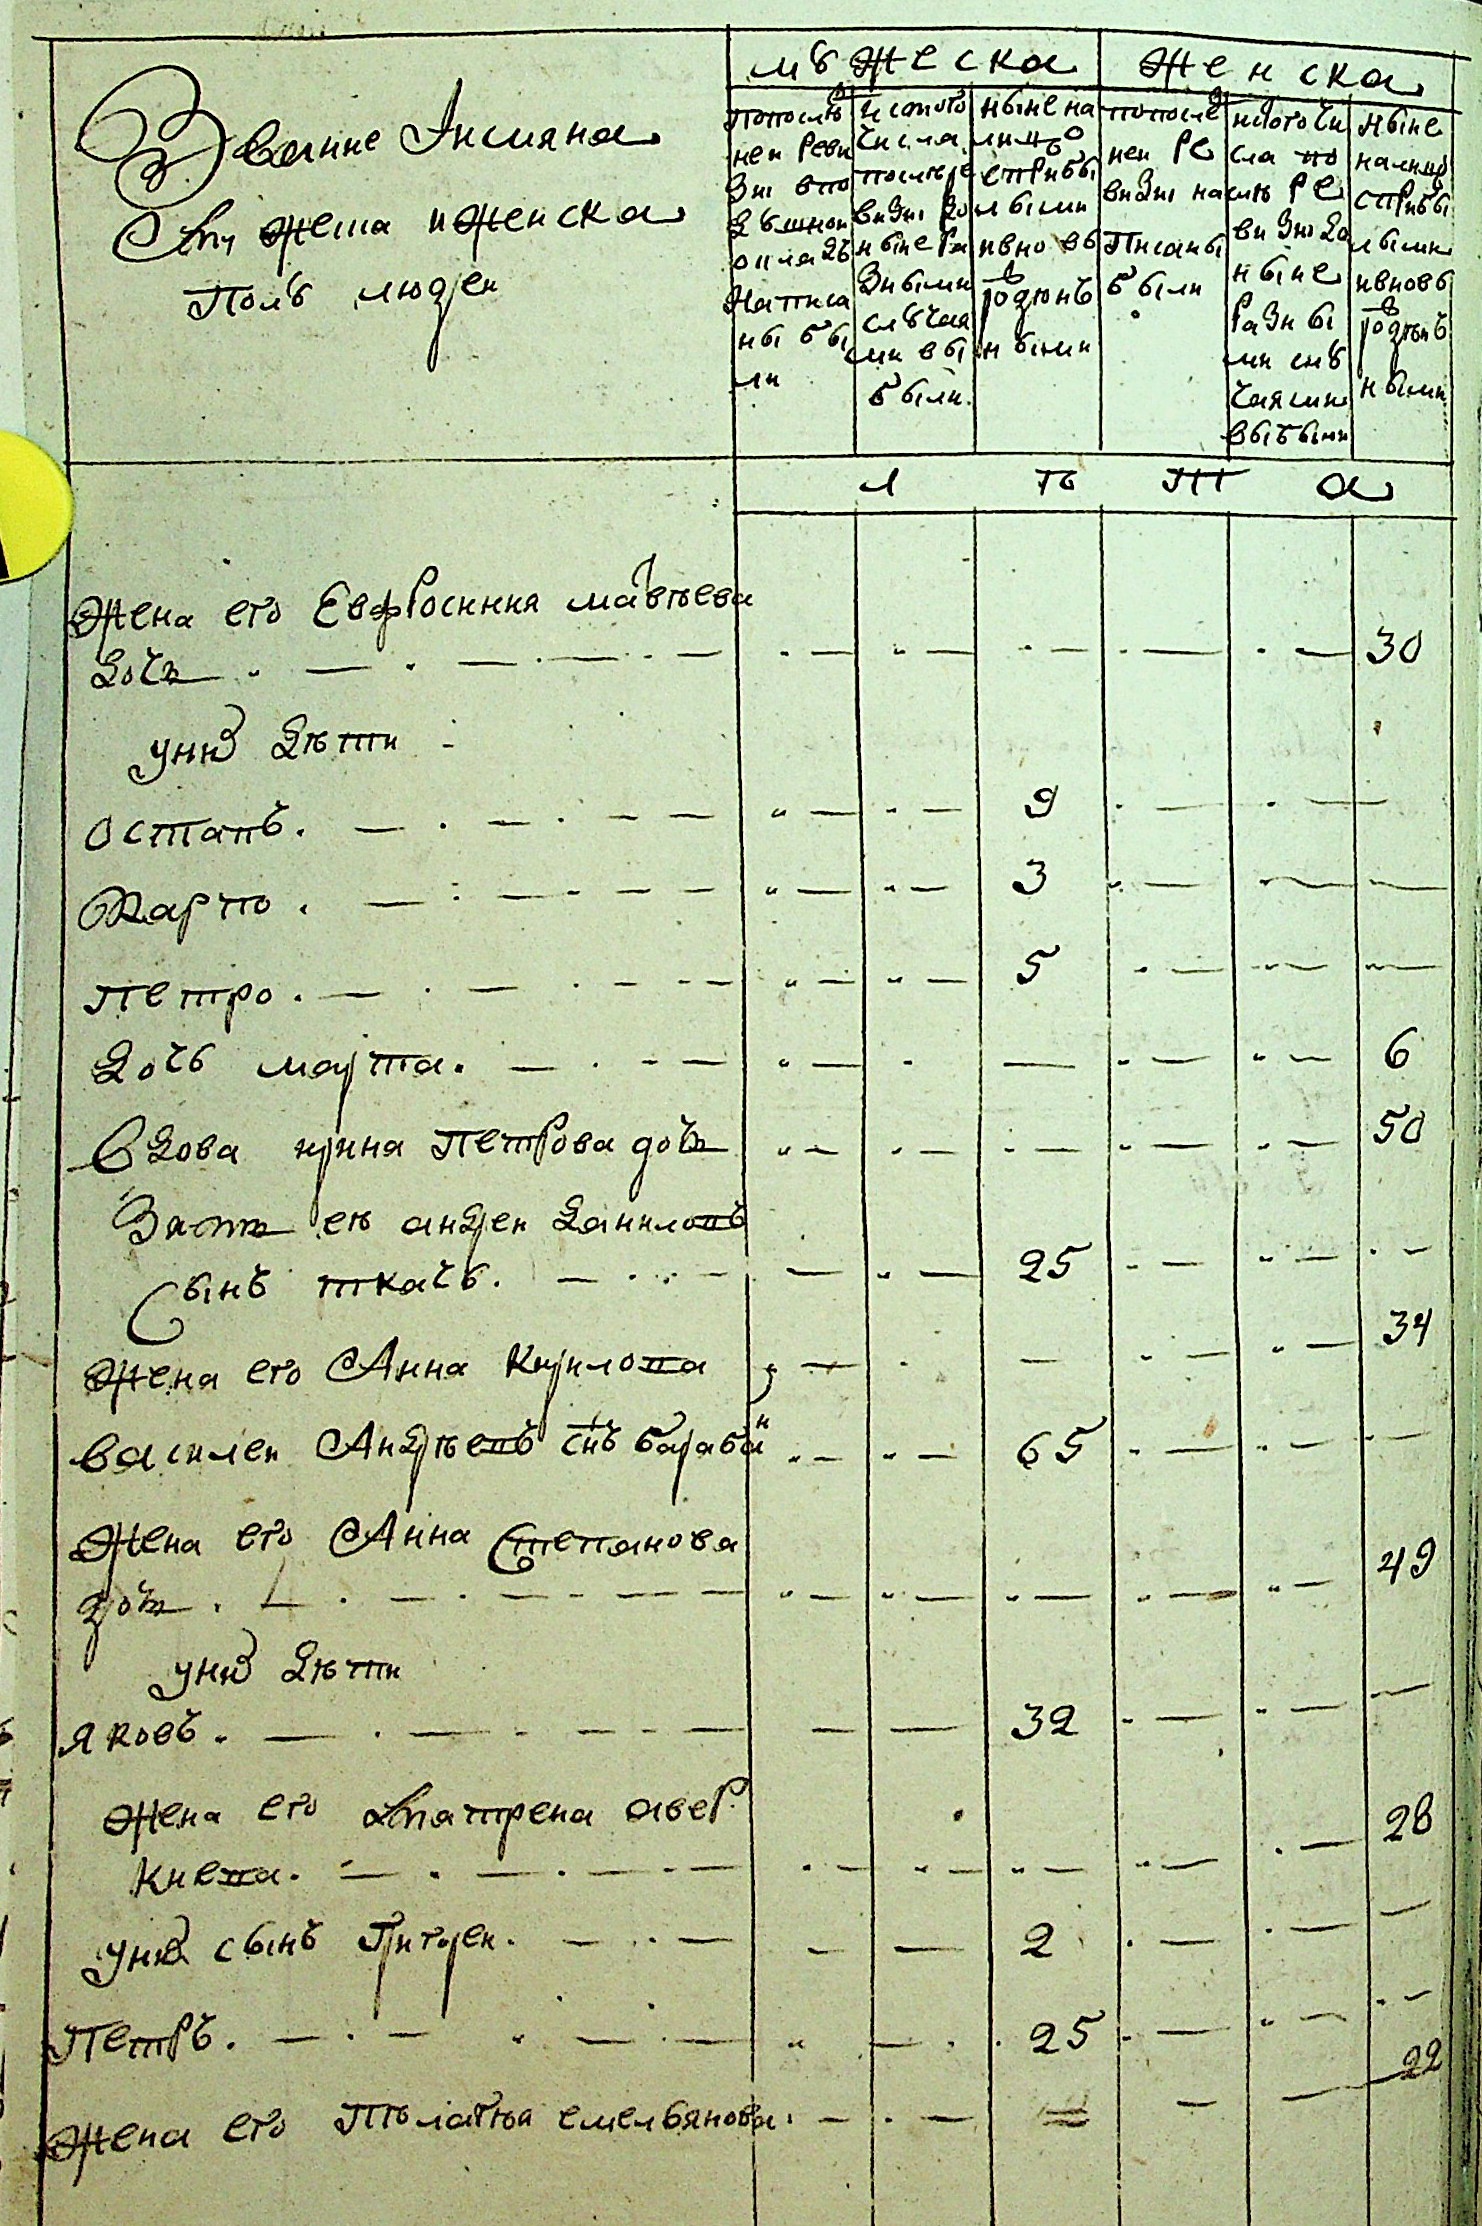 Звание Імяна
мужеска и женска
полу людей
мужеска
женска
по после
ней реви
зии в по
душном
окладъ
написа
ны бы
ли
ис того
числа
после ре
визии до
ныне ра
зными
случая
ми вы
были.
ныне на
лицо
с прибы
лыми
и вновь
рожденъ
ными
по после
ней ре
визии на
писаны
были
ис того чи
сла по
сле ре
визии до
ныне
разны
ми слу
чаями
выбыли
ныне
на лицо
с прибы
лыми
и вновь
рожденъ
ными
л ѣ т а
Жена его Евфросиния матвѣева
дочь 30
у них дѣти
Остапъ. 9
Карпо. 3
Петро. 5
Дочь марта. 6
Вдова ирина Петрова дочь 50
Зять еѣ андреи даниловъ
сынъ ткачь. 25
Жена его Анна Кирилова 34
Василеи Андрѣевъ снъ барабан 65
Жена его Анна Степанова
дочь. 49
у них дѣти
Яковъ. 32
Жена его Катрена авер
киева. 28
у них сынъ Григореи. 2
Петръ. 25
Жена его Пѣлагѣа емельянова. 22